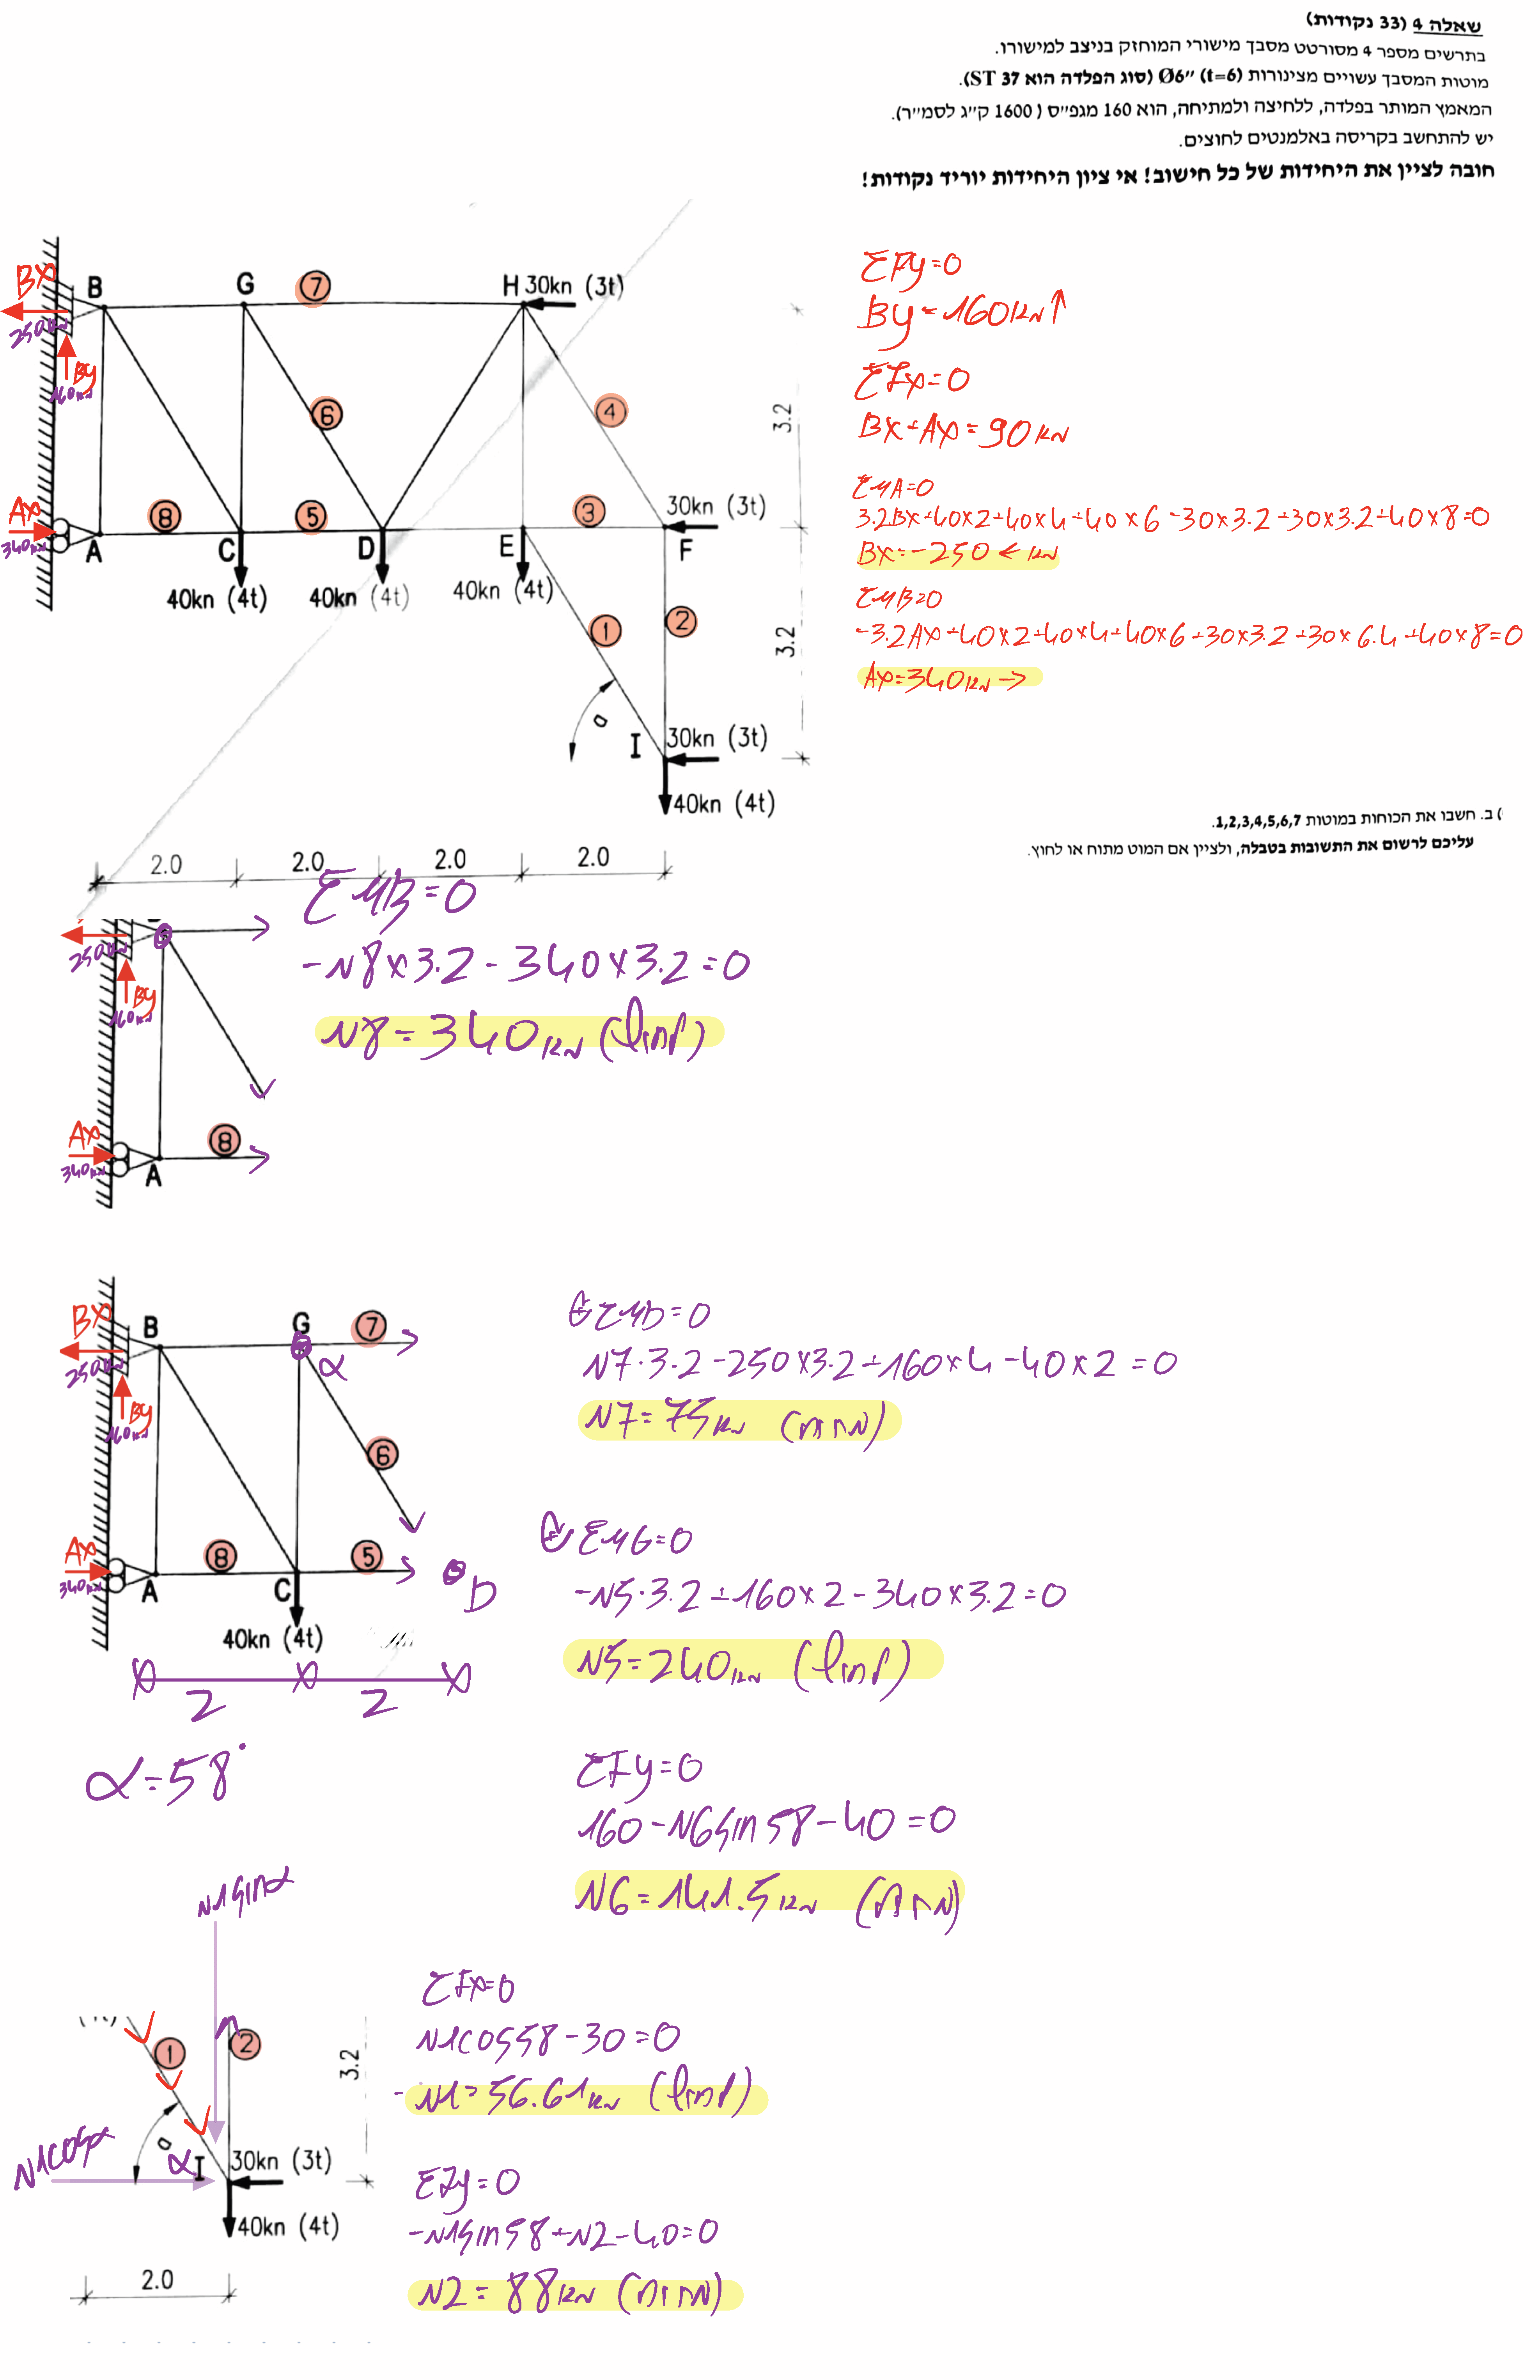 שאלה 4 (33 נקודות)
בתרשים מספר 4 מסורטט מסבך מישורי המוחזק בניצב למישורו.
מוטות המסבך עשויים מצינורות Ø6″ (t=6) (סוג הפלדה הוא ST 37).
המאמץ המותר בפלדה, ללחיצה ולמתיחה, הוא 160 מגפ״ס ( 1600 ק״ג לסמ״ר).
יש להתחשב בקריסה באלמנטים לחוצים.
חובה לציין את היחידות של כל חישוב! אי ציון היחידות יוריד נקודות!
Bx
250kN
By
160kN
B
G
7
H 30kn (3t)
6
4
3.2
Ax
340kN
A
8
C
5
D
E
3
30kn (3t)
F
40kn (4t)
40kn (4t)
40kn (4t)
1
2
3.2
α
I
30kn (3t)
40kn (4t)
2.0
2.0
2.0
2.0
ΣFy=0
By=160kN↑
ΣFx=0
Bx+Ax=90kN
ΣMA=0
3.2Bx+40×2+40×4+40×6-30×3.2+30×3.2+40×8=0
Bx=-250 ← kN
ΣMB=0
-3.2Ax+40×2+40×4+40×6+30×3.2+30×6.4+40×8=0
Ax=340kN→
ב. חשבו את הכוחות במוטות 1,2,3,4,5,6,7.
עליכם לרשום את התשובות בטבלה, ולציין אם המוט מתוח או לחוץ.
ΣMB=0
-N8×3.2-340×3.2=0
N8=340kN (לחוץ)
250kN
By
160kN
Ax
340kN
A
8
Bx
250kN
By
160kN
B
G
7
α
6
Ax
340kN
A
8
C
5
D
40kn (4t)
2
2
α=58°
ΣMD=0
N7·3.2-250×3.2+160×4-40×2=0
N7=75kN (מתוח)
ΣMG=0
-N5·3.2+160×2-340×3.2=0
N5=240kN (לחוץ)
ΣFy=0
160-N6sin58-40=0
N6=141.5kN (מתוח)
N1sinα
1
2
3.2
N1cosα
α
α
I
30kn (3t)
40kn (4t)
2.0
ΣFx=0
N1cos58-30=0
-N1=56.61kN (לחוץ)
ΣFy=0
-N1sin58+N2-40=0
N2=88kN (מתוח)